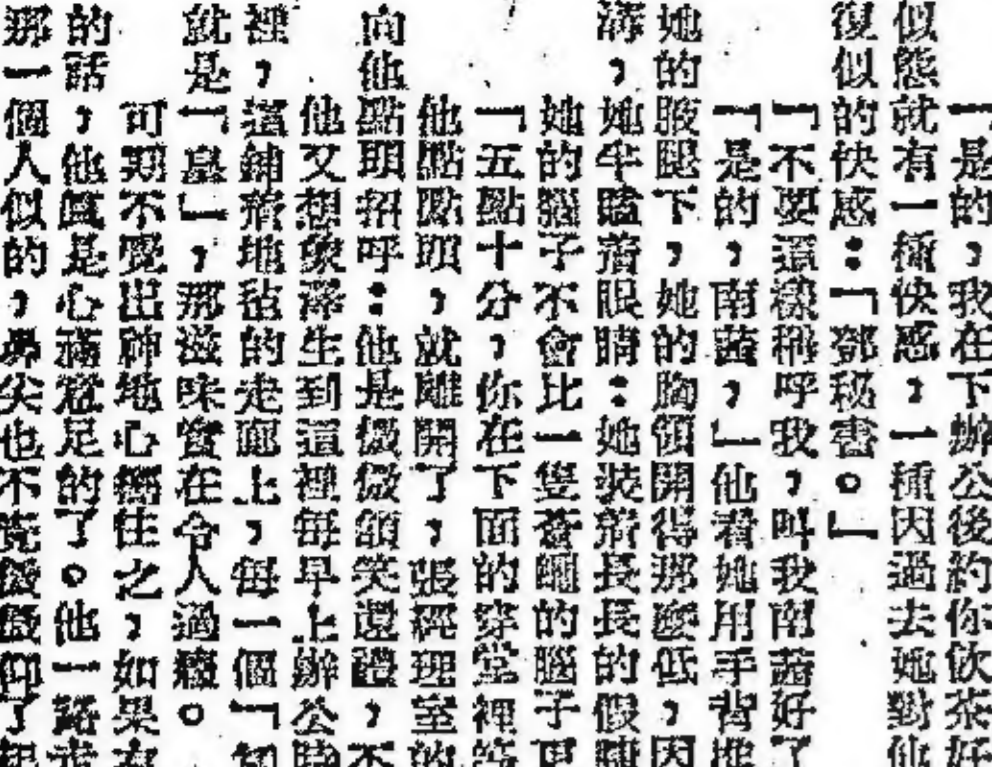 「是的，我在下辦公後約你飲茶好
似態就有一種快感，一種因過去她對他
復似的快感：「鄧秘書。」
「不要這樣稱呼我，叫我南茜好了
「是的，南茜，」他看她用手背推
她的腋腿下，她的胸領開得那麼低，因
溝，她半瞌着眼睛：她裝着長長的假睫
她的腦子不會比一隻蒼蠅的腦子更
「五點十分，你在下面的穿堂裡等
他點點頭，就離開了，張經理室的
向他點頭招呼：他是微微頷笑還禮，不
他又想象落生到這裡每早上辦公時
裡，這鋪着地毡的走廊上，每一個「
就是「皇」，那滋味實在令人過癮。
可期不覺出神地心嚮往之，如果有
的話，他真是心滿意足的了。他一路走
那一個人似的，鼻尖也不覺微微仰了起